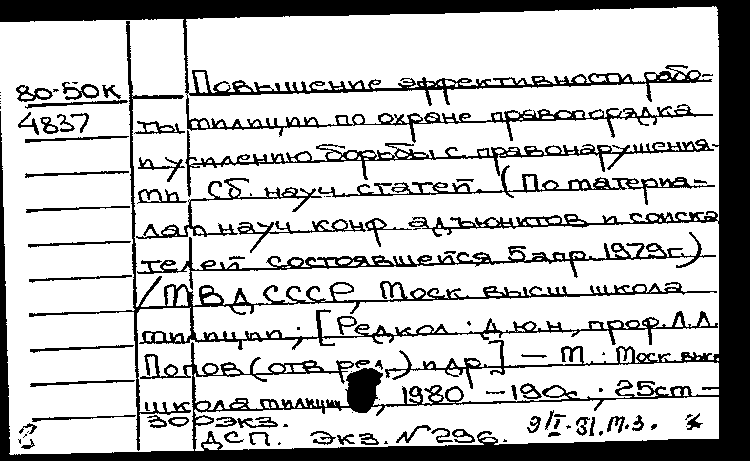 80-50к Повышение эффективности рабо-
4837 ты милиции по охране правопорядка
и усилению борьбы с правонарушения-
ми Сб. науч. статей. (По материа-
лам науч конф. адъюнктов и соиска
телей состоявшейся 5 апр. 1979г.)
/МВД СССР, Моск. высш школа
милиции; [Редкол: д.ю.н, проф. Л.Л.
Попов (отв ред.) и др.] — М: Моск. высш
школа милиции, 1980 - 190с.; 25см —
300экз.
ДСП. Экз. № 296. 9/I-81.М.З.